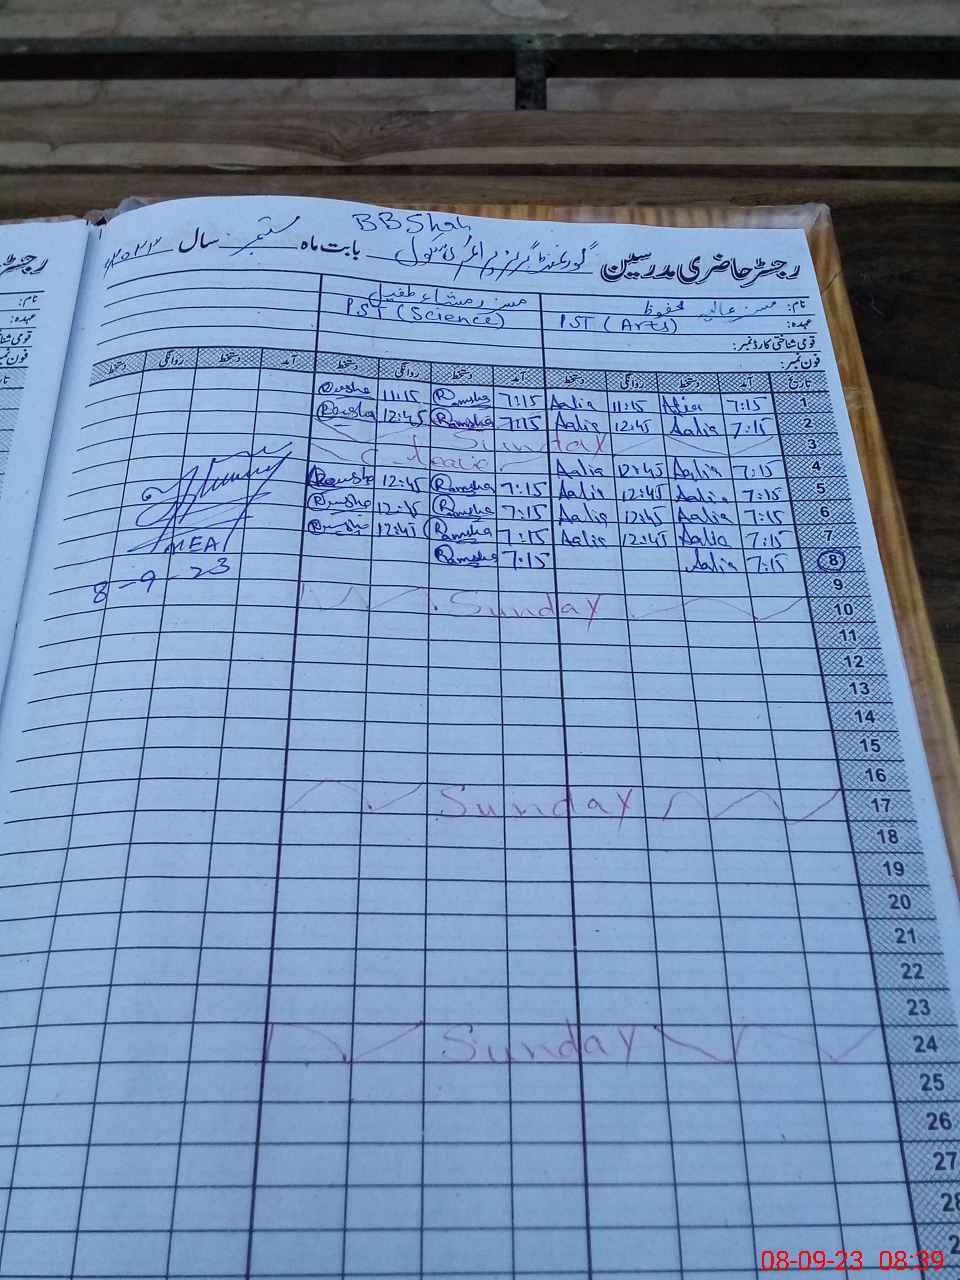 BB Shah
رجسٹر حاضری مدرسین گورنمنٹ گرلز پرائمری سکول بابت ماہ ستمبر سال ۲۰۲۳
نام: مسز عالیہ محفوظ مسز رمشاء طفیل
عہدہ: PST (Arts) PST (Science)
قومی شناختی کارڈ نمبر:
فون نمبر:
تاریخ آمد دستخط روانگی دستخط آمد دستخط روانگی دستخط آمد دستخط روانگی دستخط
1 7:15 Aalia 11:15 Aalia 7:15 Ramsha 11:15 Ramsha
2 7:15 Aalia 12:45 Aalia 7:15 Ramsha 12:45 Ramsha
3 Sunday
4 7:15 Aalia 12:45 Aalia
5 7:15 Aalia 12:45 Aalia 7:15 Ramsha 12:45 Ramsha
6 7:15 Aalia 12:45 Aalia 7:15 Ramsha 12:45 Ramsha
7 7:15 Aalia 12:45 Aalia 7:15 Ramsha 12:45 Ramsha
8 7:15 Aalia 7:15 Ramsha
MEA
8-9-23
9
10 Sunday
11
12
13
14
15
16
17 Sunday
18
19
20
21
22
23
24 Sunday
25
26
27
28
08-09-23 08:39